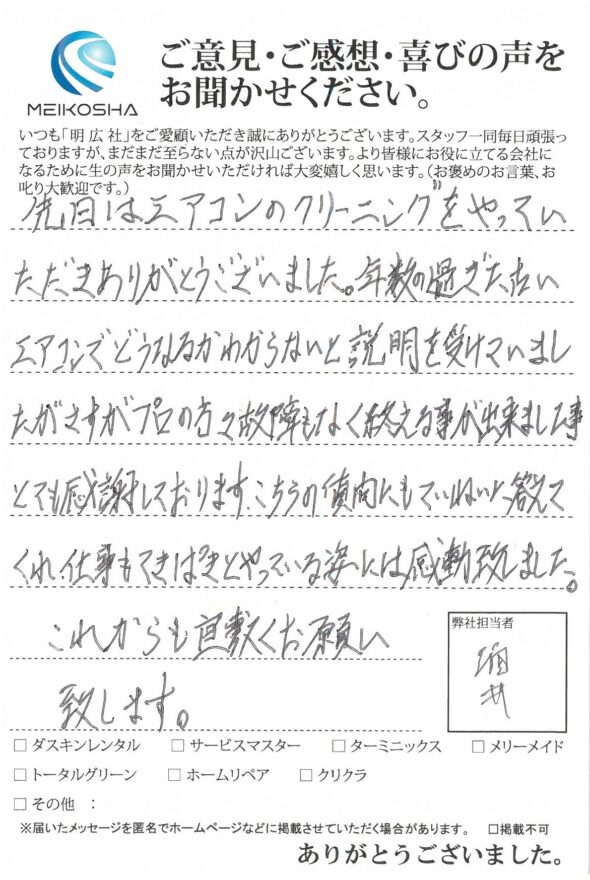 MEIKOSHA
ご意見・ご感想・喜びの声を
お聞かせください。
いつも「明広社」をご愛顧いただき誠にありがとうございます。スタッフ一同毎日頑張っ
ておりますが、まだまだ至らない点が沢山ございます。より皆様にお役に立てる会社に
なるために生の声をお聞かせいただければ大変嬉しく思います。(お褒めのお言葉、お
叱り大歓迎です。)
先日はエアコンのクリーニングをやってい
ただきありがとうございました。年数の過ぎた古い
エアコンでどうなるかわからないと説明を受けていまし
たがさすがプロの方々故障もなく終える事が出来ました事
とても感謝しております。こちらの質問にもていねいに答えて
くれ、仕事もてきぱきとやっている姿には感動致しました。
これからも宜敷くお願い
致します。
弊社担当者
堀井
□ ダスキンレンタル □ サービスマスター □ ターミニックス □ メリーメイド
□ トータルグリーン □ ホームリペア □ クリクラ
□ その他 :
※届いたメッセージを匿名でホームページなどに掲載させていただく場合があります。 □掲載不可
ありがとうございました。